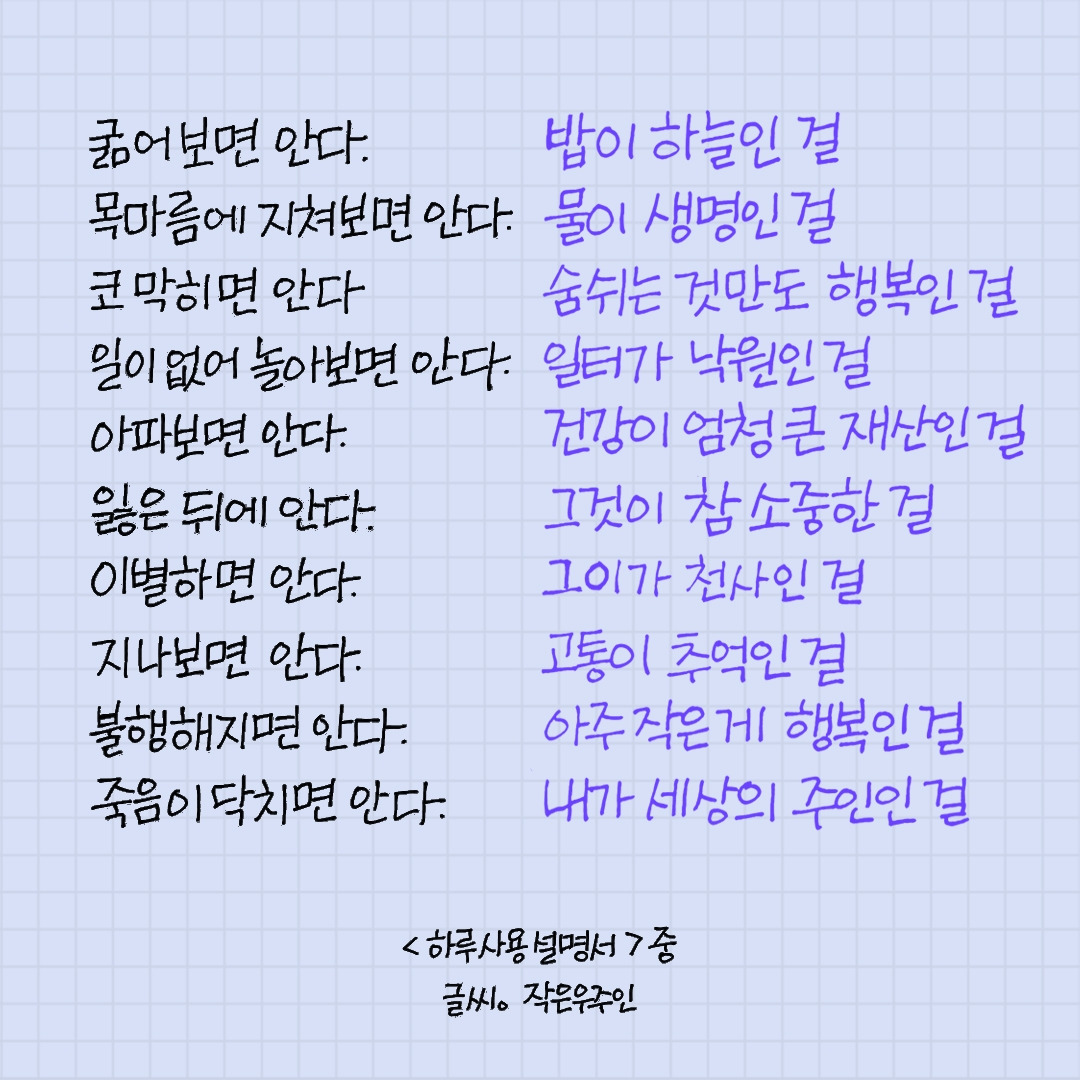 굶어보면 안다. 밥이 하늘인 걸
목마름에 지쳐보면 안다. 물이 생명인 걸
코 막히면 안다 숨쉬는 것만도 행복인 걸
일이 없어 놀아보면 안다. 일터가 낙원인 걸
아파보면 안다. 건강이 엄청 큰 재산인 걸
잃은 뒤에 안다. 그것이 참 소중한 걸
이별하면 안다. 그이가 천사인 걸
지나보면 안다. 고통이 추억인 걸
불행해지면 안다. 아주 작은게 행복인 걸
죽음이 닥치면 안다. 내가 세상의 주인인 걸
<하루사용설명서> 중
글씨。 작은우주인